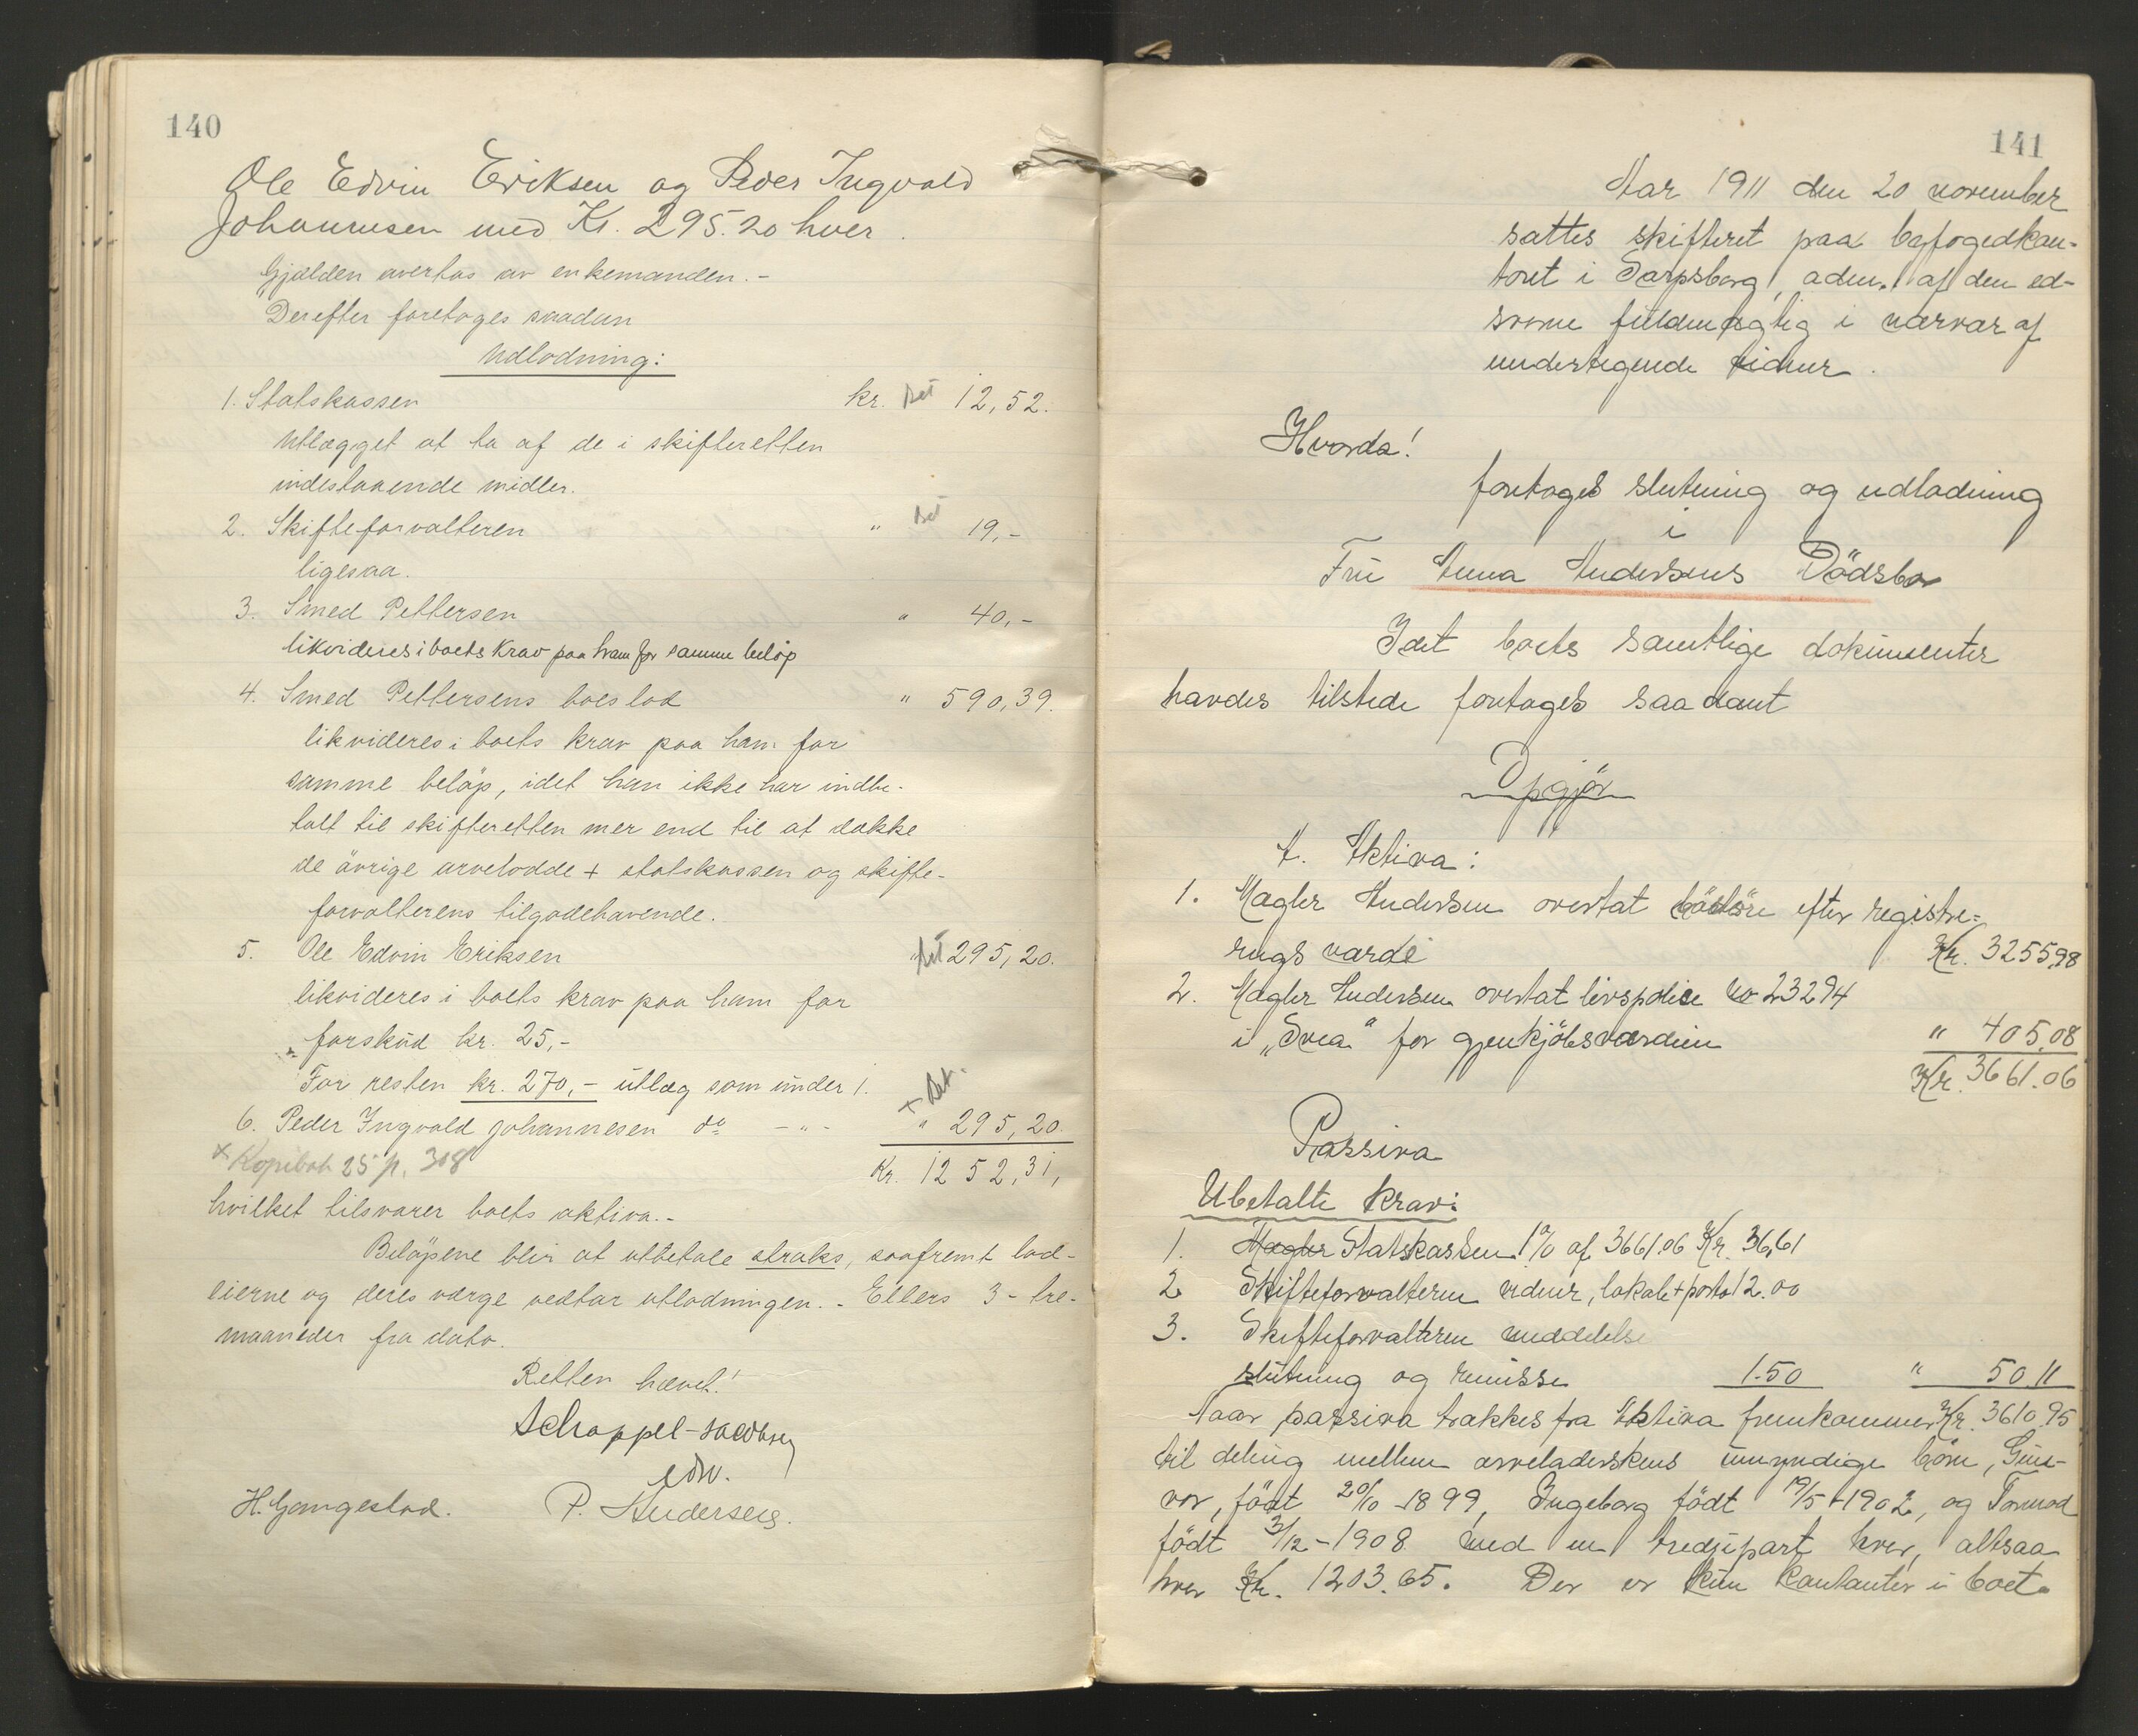 140
Ole Edvin Eriksen og Peder Ingvald
Johannesen med Kr. 295.20 hver.
Gjælden overtas av enkemanden. -
Derefter foretoges saadan
Udlodning:
1. Statskassen kr. Bet 12,52.
Utlægget at ta af de i skifteretten
indestaaende midler.
2. Skifteforvalteren " Bet 19,-
ligesaa.
3. Smed Pettersen " 40,-
likvideres i boets krav paa ham for samme belöp
4. Smed Pettersens boeslod " 590,39.
likvideres i boets krav paa ham for
samme belöp, idet han ikke har indbe-
talt til skifteretten mer end til at dække
de övrige arvelodde + statskassen og skifte-
forvalterens tilgodehavende.
5. Ole Edvin Eriksen " Bet 295,20.
likvideres i boets krav paa ham for
forskud kr. 25,-
For resten kr. 270,- utlæg som under 1.
6. Peder Ingvald Johannesen do - " - + Bet. " 295,20.
x Kopibok 25 p. 308
Kr. 1252,31,
hvilket tilsvarer boets aktiva. -
Belöpene blir at utbetale straks, saafremt lod-
eierne og deres værge vedtar utlodningen. - Ellers 3 - tre -
maaneder fra dato.
Retten hævet!
Schappel-Jacobsen
edsv.
H. Gangestad. P. Andersen.
141
Aar 1911 den 20 november
sattes skifteret paa byfogedkon-
toret i Sarpsborg, adm. af den ed-
svorne fuldmægtig i nærvær af
undertegnede vidner.
Hvorda!
foretoges slutning og udlodning
i
Fru Anna Andersens Dödsbo
Idet boets samtlige dokumenter
havdes tilstede foretoges saadant
Opgjör
A. Aktiva:
1. Mægler Andersen overtat lösöre efter registre-
rings værdi Kr. 3255.98
2. Mægler Andersen overtat livspolice No 23294
i "Svea" for gjenkjöbsværdien " 405.08
Kr. 3661.06
Passiva
Ubetalte krav:
1. Mægler Statskassen 1% af 3661.06 Kr. 36.61
2 Skifteforvalteren vidner, lokale + porto 12.00
3. Skifteforvalteren meddelelse
slutning og remisse 1.50 " 50.11
Naar passiva trækkes fra Aktiva fremkommer Kr. 3610.95
til deling mellem arveladerskens umyndige börn, Gun-
vor, född 20/10 - 1899, Ingeborg född 19/5 - 1902, og Tormod
född 3/12 - 1908 med en tredjepart hver, altsaa
hver Kr. 1203.65. Der er kun kontanter i boet.